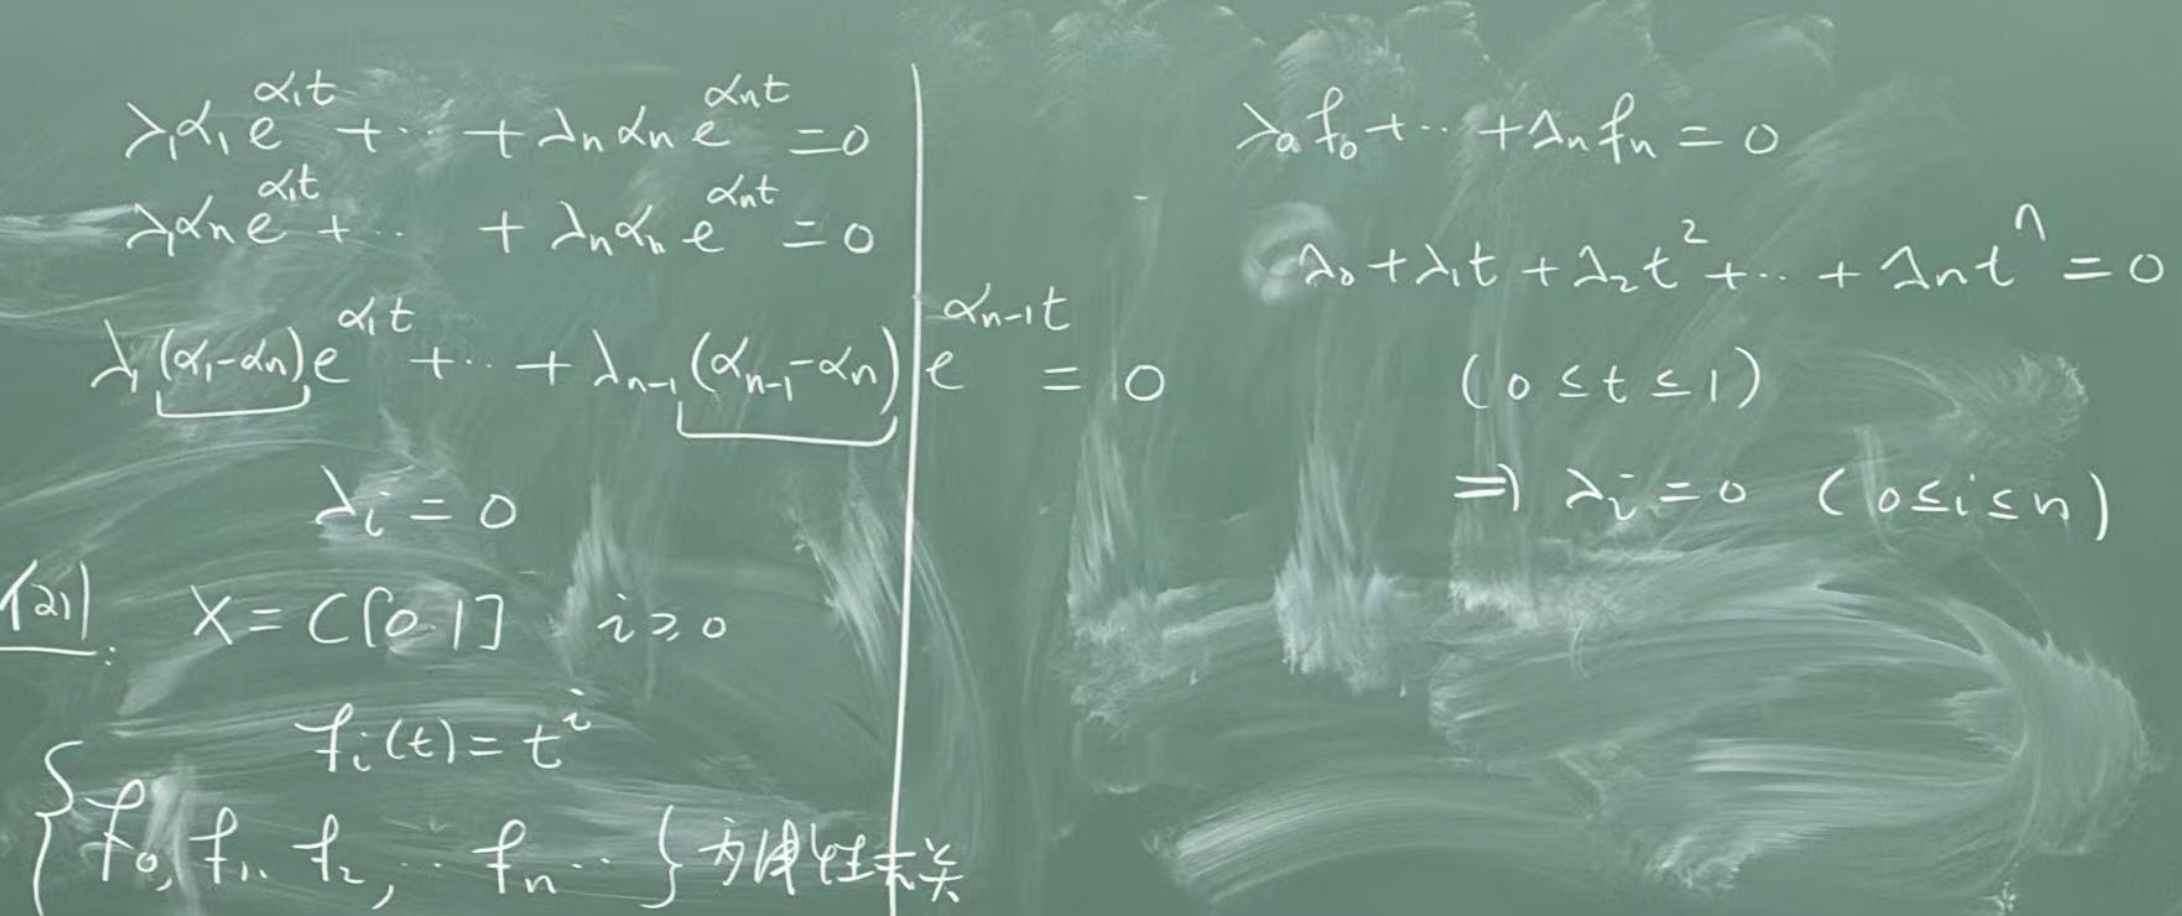 λ₁α₁e^{α₁t} + ⋯ + λₙαₙe^{αₙt} = 0
λ₁αₙe^{α₁t} + ⋯ + λₙαₙe^{αₙt} = 0
λ₁(α₁-αₙ)e^{α₁t} + ⋯ + λₙ₋₁(αₙ₋₁-αₙ)e^{αₙ₋₁t} = 0
λᵢ = 0
例: X = C[0.1] i ≥ 0
fᵢ(t) = tⁱ
{f₀, f₁, f₂, ⋯ fₙ ⋯} 为线性无关
λ₀f₀ + ⋯ + λₙfₙ = 0
λ₀ + λ₁t + λ₂t² + ⋯ + λₙtⁿ = 0
(0 ≤ t ≤ 1)
⇒ λᵢ = 0 (0 ≤ i ≤ n)